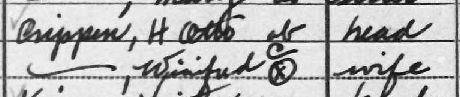 Crippen, H Otto head
——, Winifred Ⓧ wife